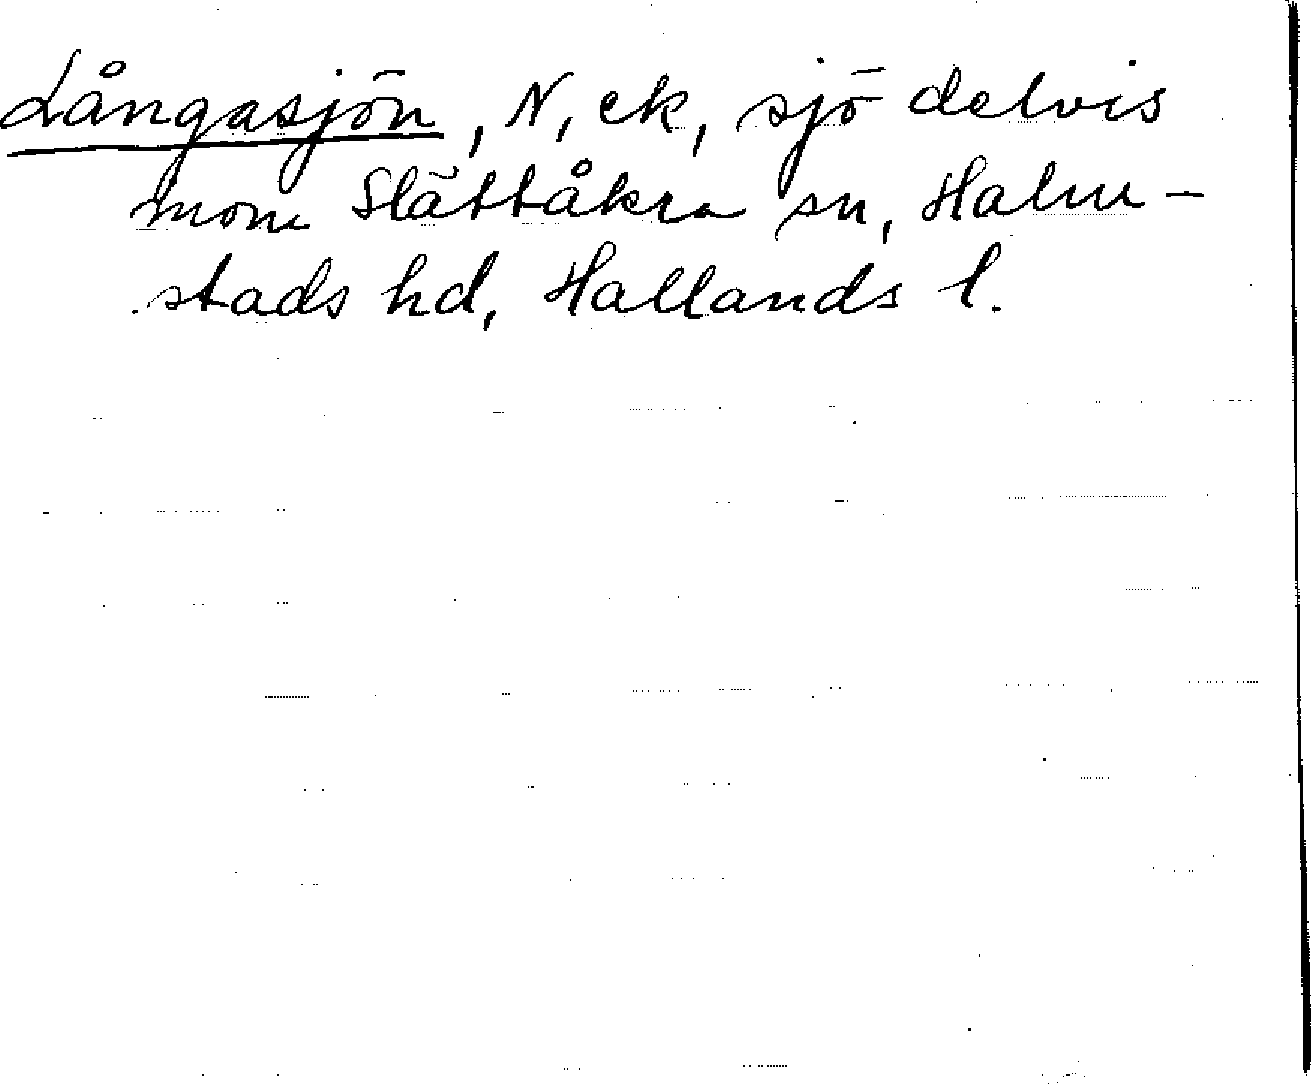 Långasjön, N, ek, sjö delvis
inom Slättåkra sn, Halm-
stads hd, Hallands l.